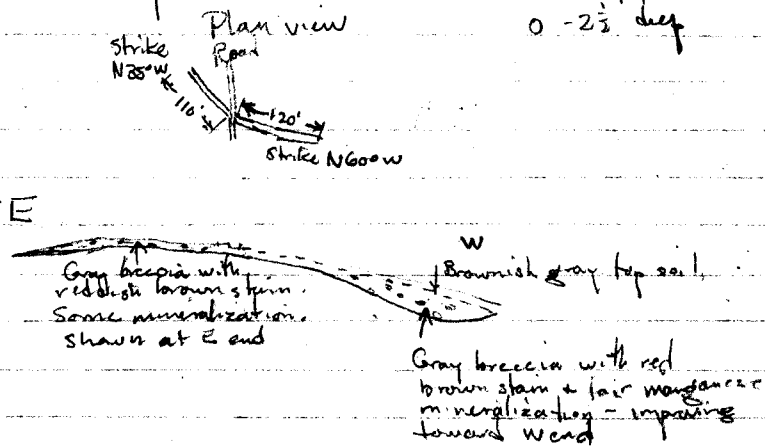 Plan view
0 -2½' deep
Strike
N35°W
Road
110'
120'
Strike N60°W
E
W
Gray breccia with
reddish brown stain.
Some mineralization.
shown at E end
Brownish gray top soil.
Gray breccia with red
brown stain & fair manganese
mineralization - improving
toward W end